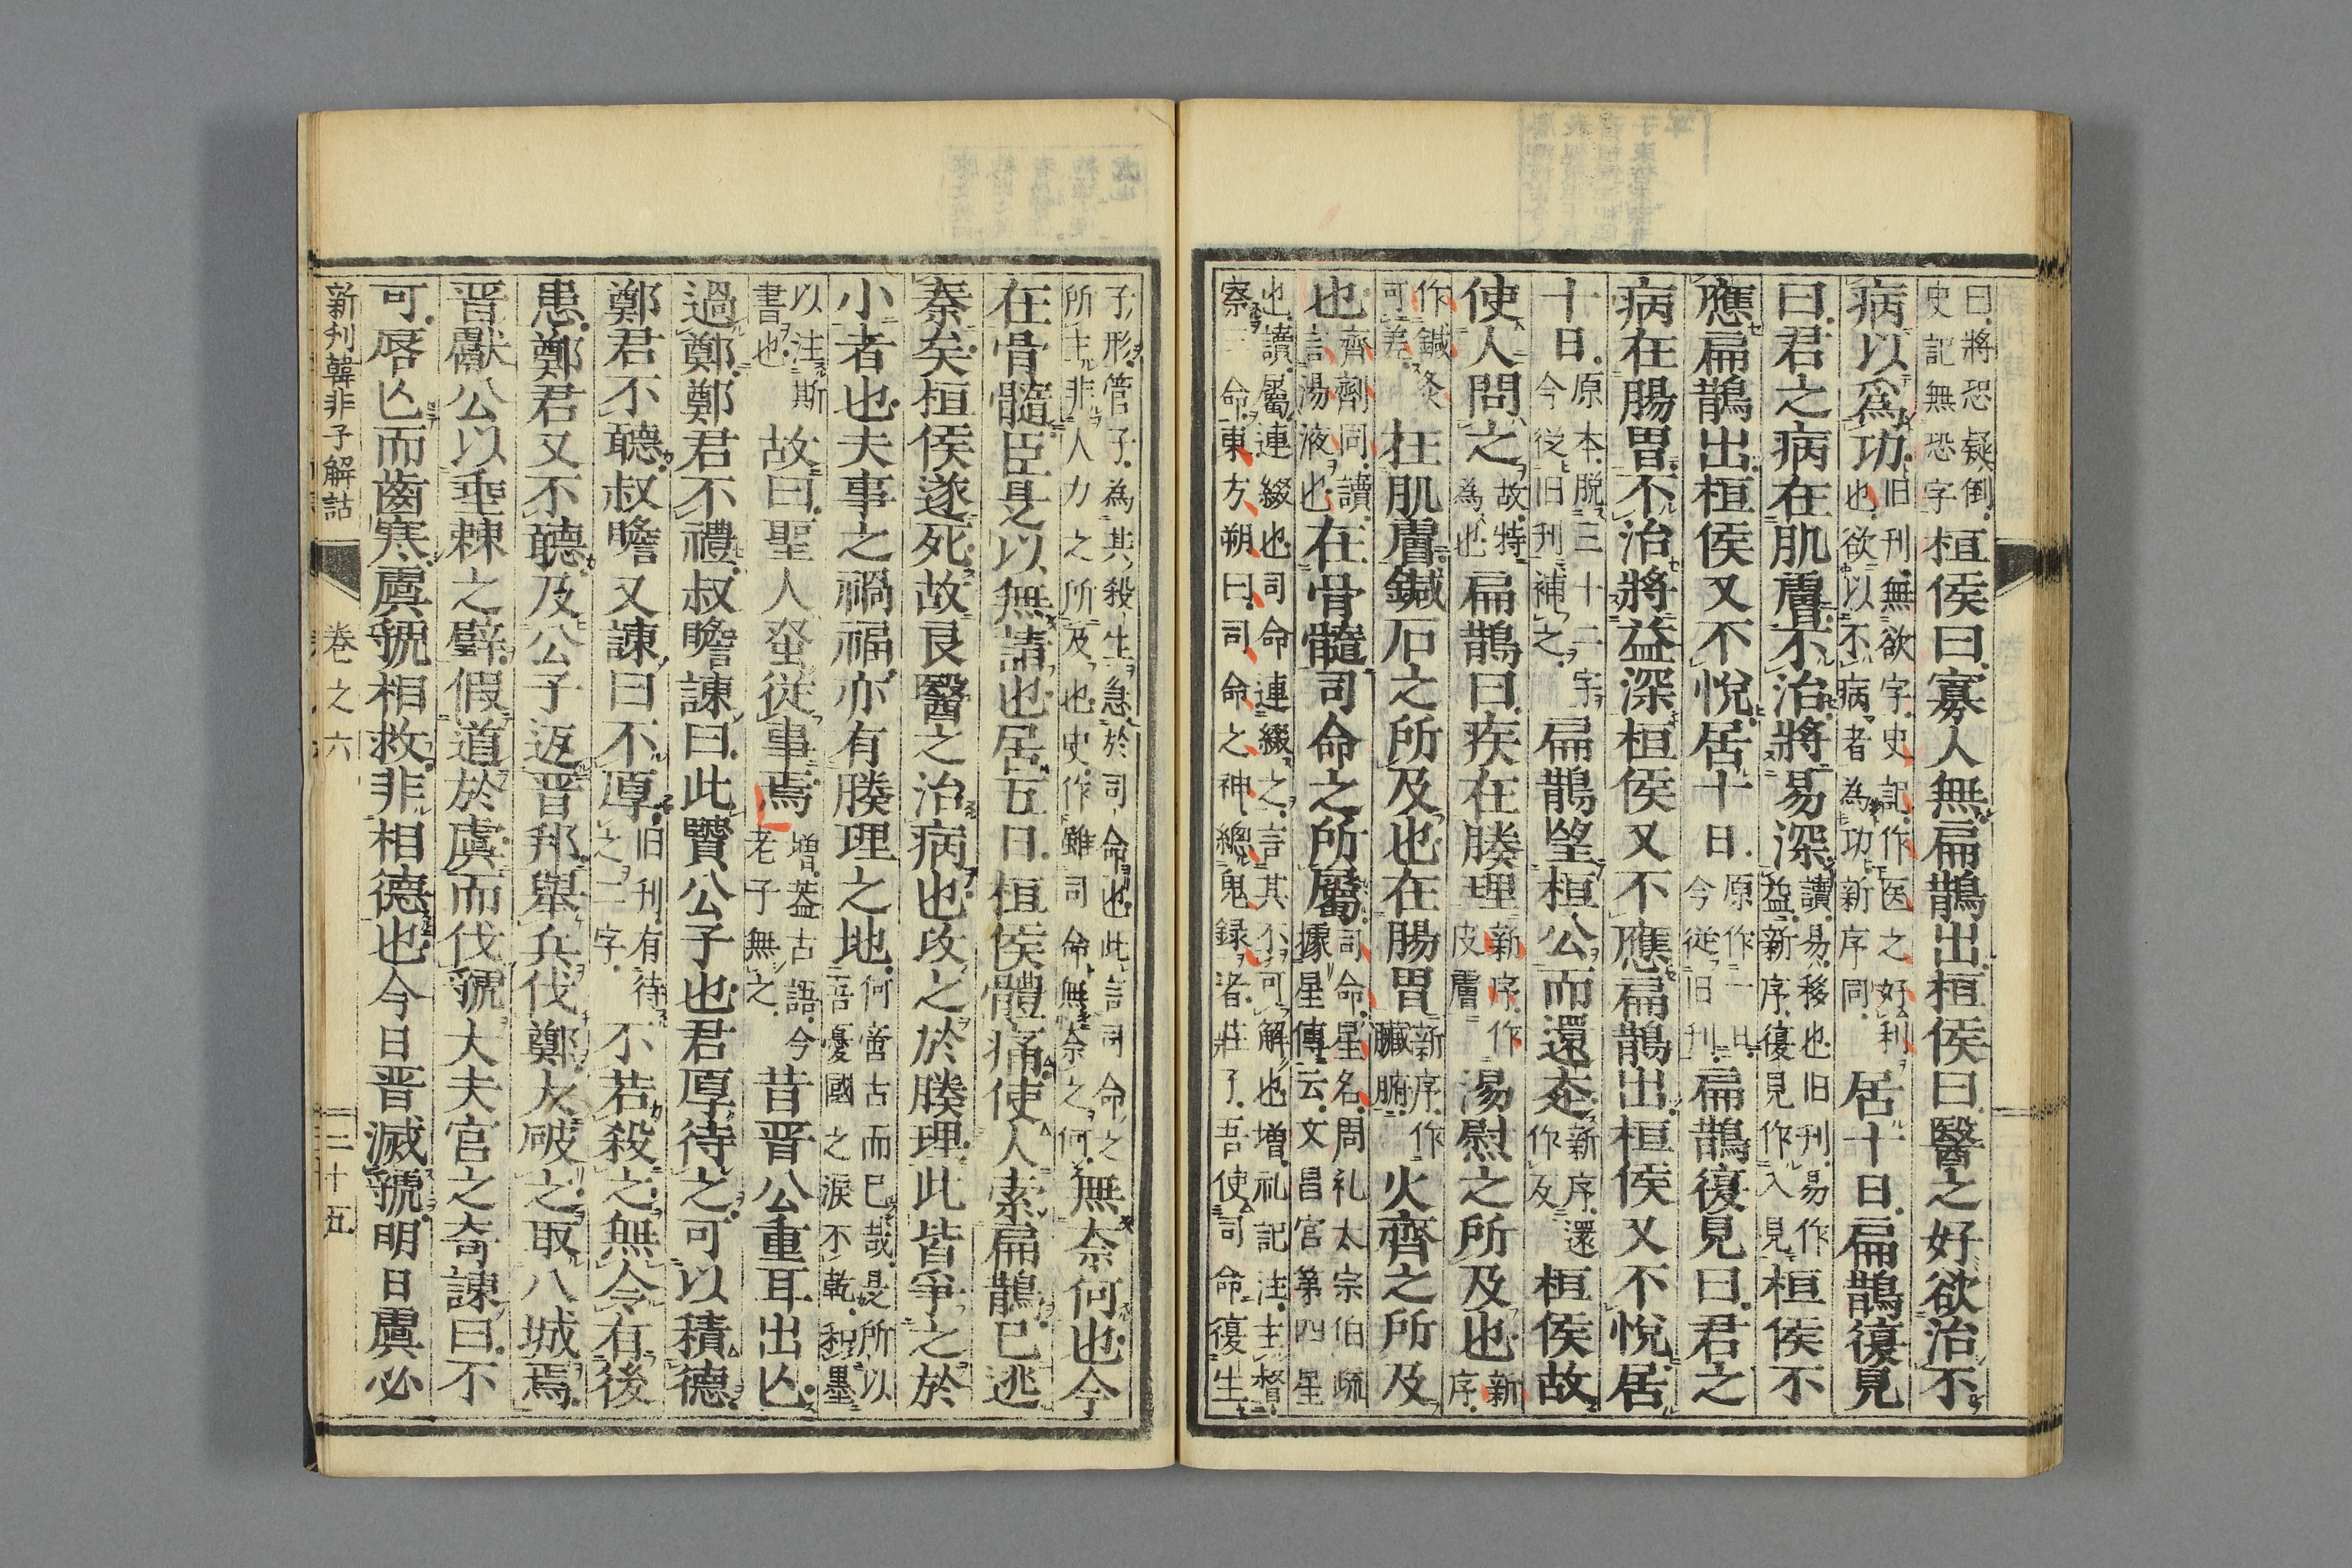 曰將恐疑倒史記無恐字桓侯曰寡人無扁鵲出桓侯曰醫之好欲治不
病以爲功旧刊無欲字史記作医之好利也欲以不病者為功新序同居十日扁鵲復見
曰君之病在肌膚不治將易深讀易移也旧刊易作益新序復見作入見桓侯不
應扁鵲出桓侯又不悅居十日原作一日今従旧刊扁鵲復見曰君之
病在腸胃不治將益深桓侯又不應扁鵲出桓侯又不悅居
十日原本脱三十二字今従旧刊補之扁鵲望桓公而還走新序還作反桓侯故
使人問之故特為也扁鵲曰疾在腠理新序作皮膚湯熨之所及也新序
作鍼灸可差在肌膚鍼石之所及也在腸胃新序作臟腑火齊之所及
也齊劑同讀言湯液也在骨髓司命之所屬司命星名周礼太宗伯疏據星傳云文昌宮第四星
也讀屬連綴也司命連綴之言其不可解也増礼記注主督察三命東方朔曰司命之神總鬼録者莊子吾使司命復生
子形管子為其殺生急於司命也此言司命之所主非人力之所及也史作雖司命無奈之何無奈何也今
在骨髓臣是以無請也居五日桓侯體痛使人索扁鵲已逃
秦矣桓侯遂死故良醫之治病也攻之於腠理此皆爭之於
小者也夫事之禍福亦有腠理之地何啻古而已哉是所以二語憂國之涙不乾和墨
以注斯書也故曰聖人蚤從事焉増葢古語今老子無之昔晋公重耳出亾
過鄭鄭君不禮叔瞻諫曰此賢公子也君厚待之可以積德
鄭君不聽叔瞻又諫曰不厚旧刊有待之二字不若殺之無令有後
患鄭君又不聽及公子返晋邦舉兵伐鄭大破之取八城焉
晋獻公以垂棘之璧假道於虞而伐虢大夫宮之奇諫曰不
可唇亾而齒寒虞虢相救非相德也今日晋滅虢明日虞必
新刊韓非子解詁 巻之六 二十五